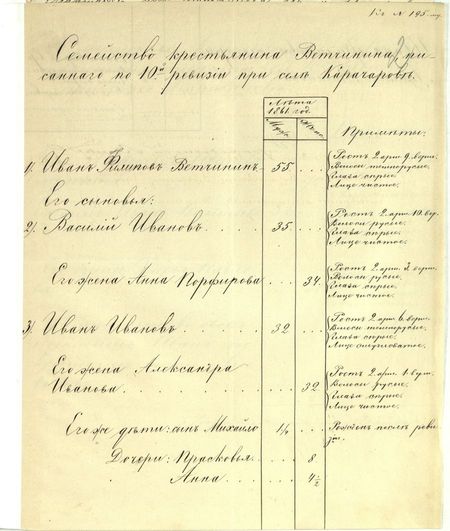 Семейство крестьянина Ветчинина, пи-
саннаго по 10й ревизіи при селѣ Карачаровѣ.
Лѣта
1861 год.
Муж. Жен.
Примѣты.
1) Иванъ Филиповъ Ветчининъ 55 . . .
Ростъ 2 арш. 9. верш.
Волосы темнорусые.
Глаза сѣрые.
Лицо чистое.
Его сыновья:
2) Василій Ивановъ . . . . 35 . . .
Ростъ 2. арш. 10. вер.
Волосы русые.
Глаза сѣрые.
Лицо чистое.
Его жена Анна Порфирова . . . 34.
Ростъ 2. арш. верш.
Волосы русые.
Глаза сѣрые.
Лицо чистое.
3) Иванъ Ивановъ . . . . . 32 . . .
Ростъ 2. арш. 6. верш.
Волосы темнорусые.
Глаза сѣрые.
Лицо
Его жена Александра
Иванова . . . . . . . . . 32
Ростъ 2. арш. 1. верш.
Волосы русые.
Глаза сѣрые.
Лицо чистое.
Его же дѣти: сынъ Михайло . . .
Рожденъ послѣ реви
зіи.
Дочери: Прасковья . . . . . 8
Анна . . . . . . 4½